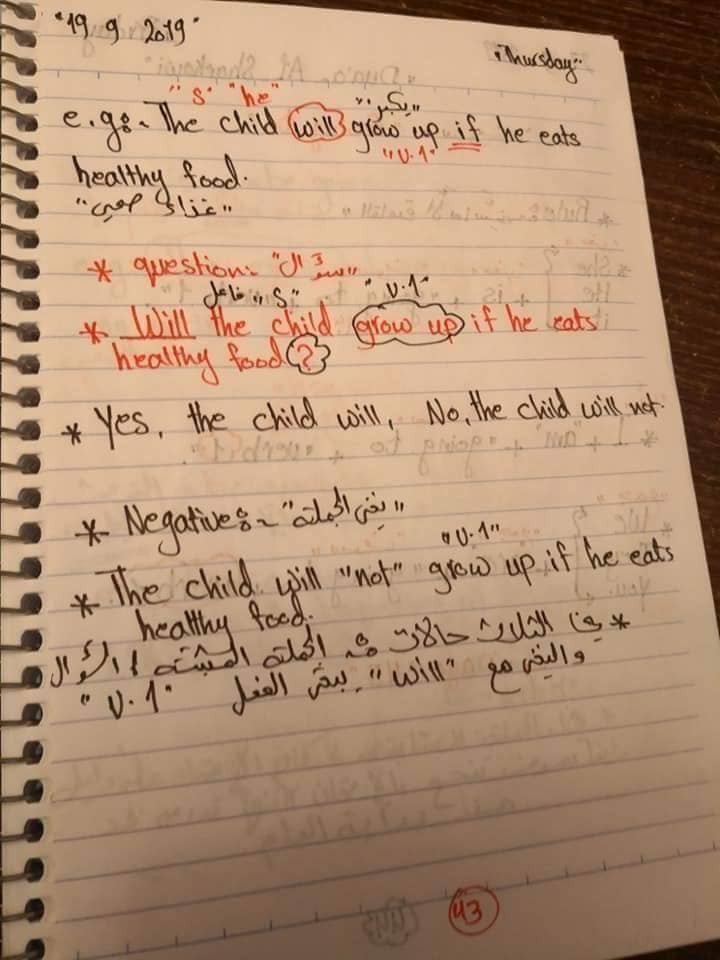 "19 9 2019"
"Thursday"
"S" "he" "يكبر"
e.g:- The child will grow up if he eats
"V.1"
healthy food.
"غذاء صحي"
* question:- "سؤال"
فاعل "S" "V.1"
* Will the child grow up if he eats
healthy food?
* Yes, the child will, No, the child will not.
* Negative:- "نفي الجملة"
"V.1"
* The child will "not" grow up if he eats
healthy food.
* في الثلاث حالات في الجملة المثبتة / السؤال
والنفي مع "will" يبقى الفعل "V.1"
43